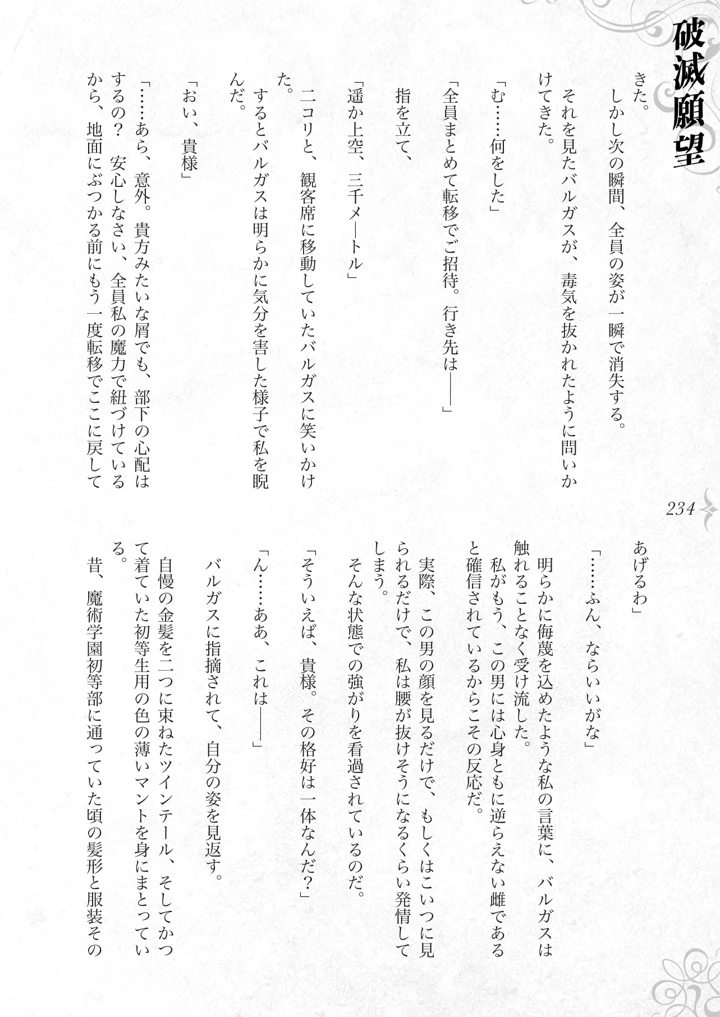 破滅願望
きた。
　しかし次の瞬間、全員の姿が一瞬で消失する。
　それを見たバルガスが、毒気を抜かれたように問いか
けてきた。
「む……何をした」
「全員まとめて転移でご招待。行き先は――」
　指を立て、
「遥か上空、三千メートル」
　ニコリと、観客席に移動していたバルガスに笑いかけ
た。
　するとバルガスは明らかに気分を害した様子で私を睨
んだ。
「おい、貴様」
「……あら、意外。貴方みたいな屑でも、部下の心配は
するの？　安心しなさい、全員私の魔力で紐づけている
から、地面にぶつかる前にもう一度転移でここに戻して
234
あげるわ」
「……ふん、ならいいがな」
　明らかに侮蔑を込めたような私の言葉に、バルガスは
触れることなく受け流した。
　私がもう、この男には心身ともに逆らえない雌である
と確信されているからこその反応だ。
　実際、この男の顔を見るだけで、もしくはこいつに見
られるだけで、私は腰が抜けそうになるくらい発情して
しまう。
　そんな状態での強がりを看過されているのだ。
「そういえば、貴様。その格好は一体なんだ？」
「ん……ああ、これは――」
　バルガスに指摘されて、自分の姿を見返す。
　自慢の金髪を二つに束ねたツインテール、そしてかつ
て着ていた初等生用の色の薄いマントを身にまとってい
る。
　昔、魔術学園初等部に通っていた頃の髪形と服装その